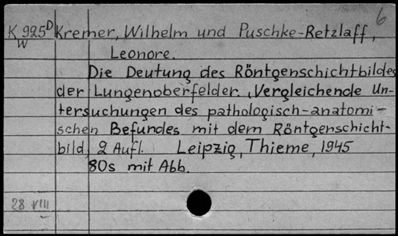 6
K 925 D Kremer, Wilhelm und Puschke-Retzlaff,
W Leonore.
Die Deutung des Röntgenschichtbildes
der Lungenoberfelder. Vergleichende Un-
tersuchungen des pathologisch-anatomi-
schen Befundes mit dem Röntgenschicht-
bild. 2 Aufl. Leipzig, Thieme, 1945
80s mit Abb.
28 VIII